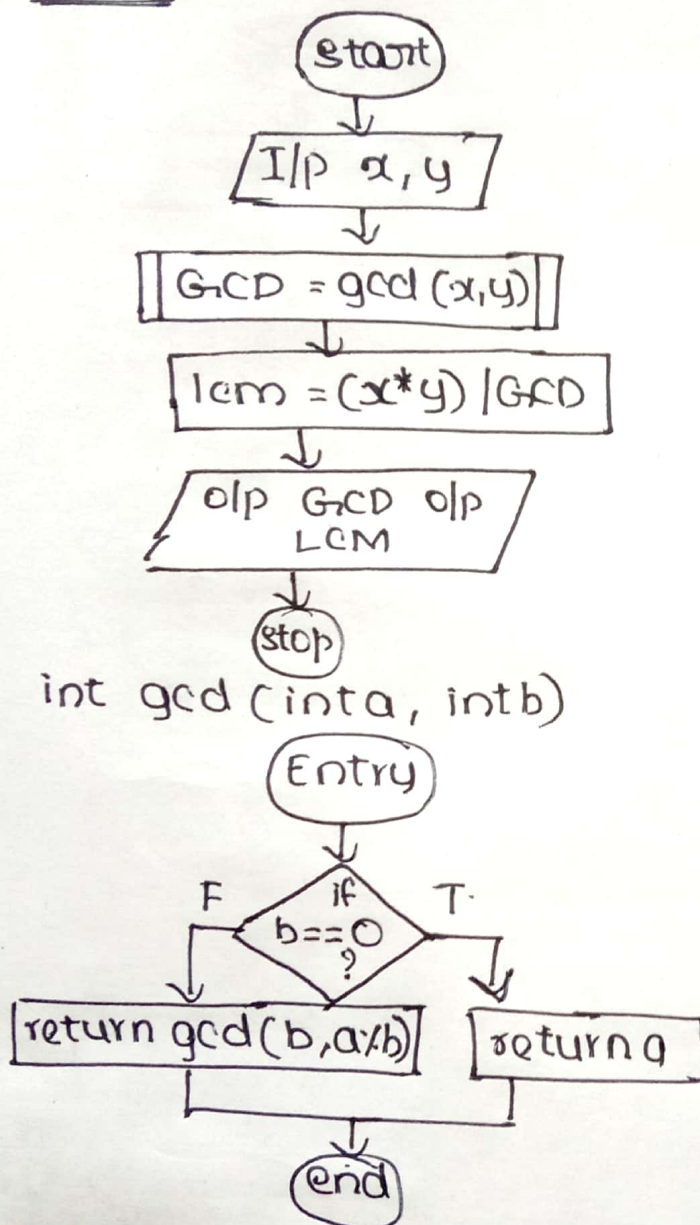 start
I/p x, y
GCD = gcd (x,y)
lcm = (x*y) /GCD
o/p GCD o/p
LCM
stop
int gcd (inta, intb)
Entry
F
if
T.
b==0
?
return gcd(b,a%b)
return a
end